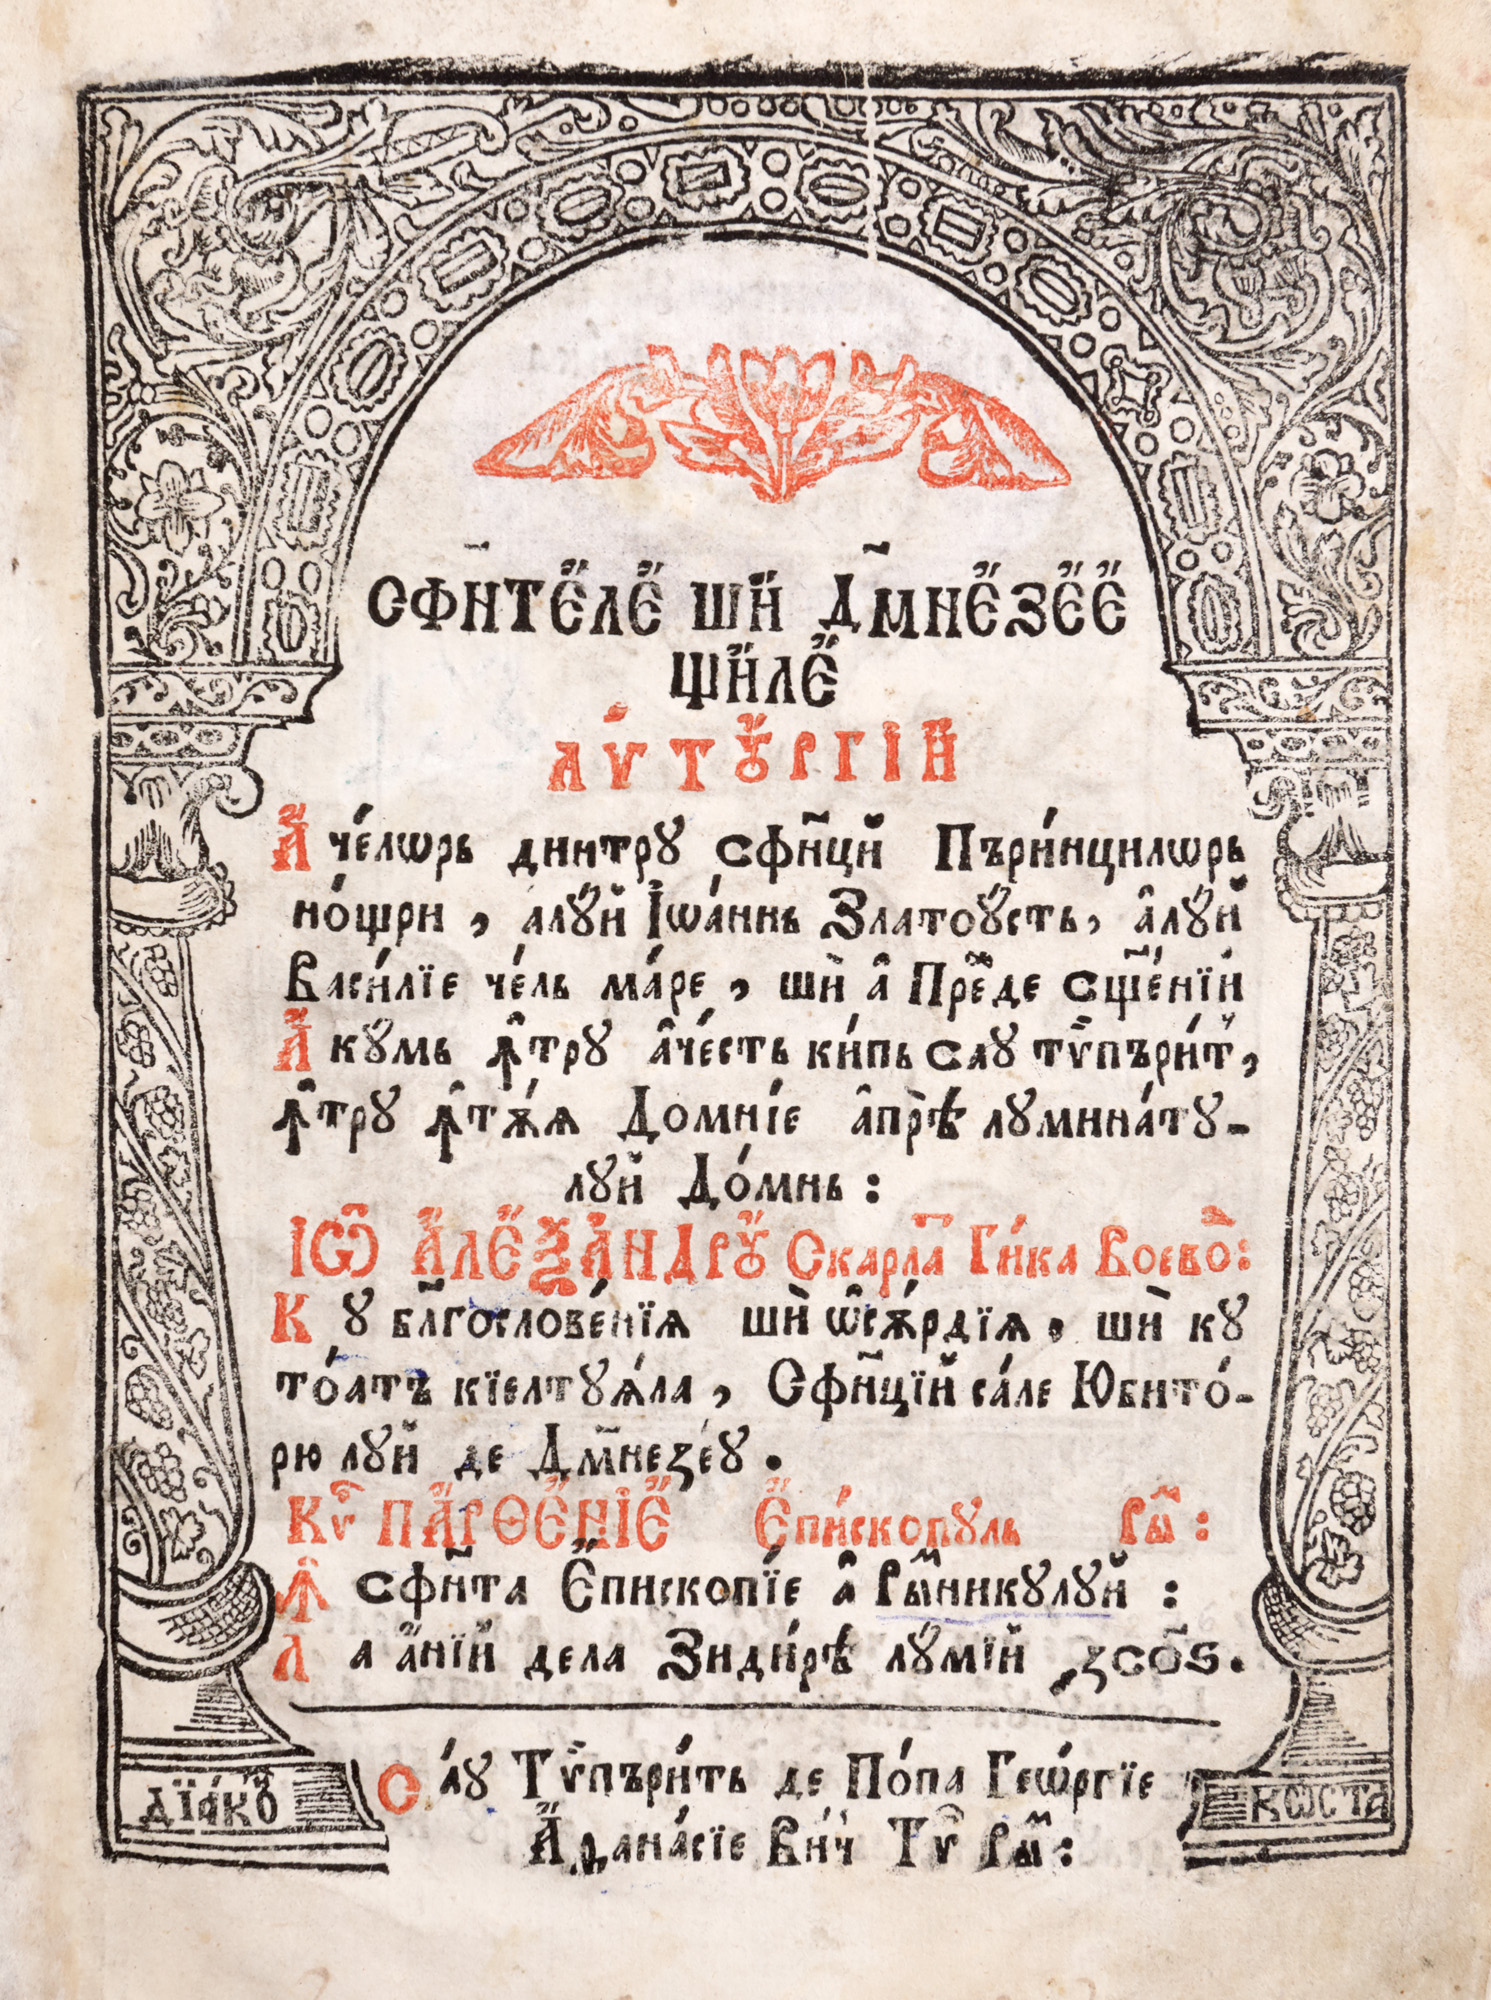 СФН҃ТЕЛЕ ШИ ДМ҃НЕЗЕЕ
ЩИЛЕ
ЛѴТꙊРГІЙ
А че́лѡрь динтрꙋ сфн҃цй Пъри́нцилѡрь
но́щри, алꙋ́й Іѡа́ннь Златоꙋ́сть, а̑лꙋ́й
Васи́лїе че́ль ма́ре, шѝ а̑ Пре҃де сщ҃е́нїй
А кꙋ́мь ꙟ̑трꙋ а̑че́сть ки́пь саꙋ тѷпъри́т,
ꙟ̑трꙋ ꙟ̑тѫ́ѧ Домні́е а̑прѣ̀ лꙋмина́тꙋ-
лꙋй До́мнь:
ІѠ҃ А҆ЛЕѮА́НДРꙊ Скарла҃т Ги́ка Воево́д:
Кꙋ бл҃гослове́нїѧ шѝ ѡ̑сѫ́рдїѧ, шѝ кꙋ
то́атъ кїелтꙋѧ́ла, Сфн҃цїй са́ле Юбито́-
рю лꙋй де Дм҃незе́ꙋ.
Кѵ́р ПАРѲЕ́НІЕ Епи́скопꙋль Ры҃м:
Ꙟ̑ сфн҃та Епископі́е а̑ Ры҃мникꙋлꙋй:
Ла а́нїй дела Зиди́рѣ лꙋ́мїй ҂зсо҃ѕ.
Са́ꙋ Тѷпъри́ть де По́па Геѡ́ргїе
А҆ѳана́сїе Ви́ч Тѵ҃ Ры҃м:
ДЇА́КО҃Н
КѠСТА